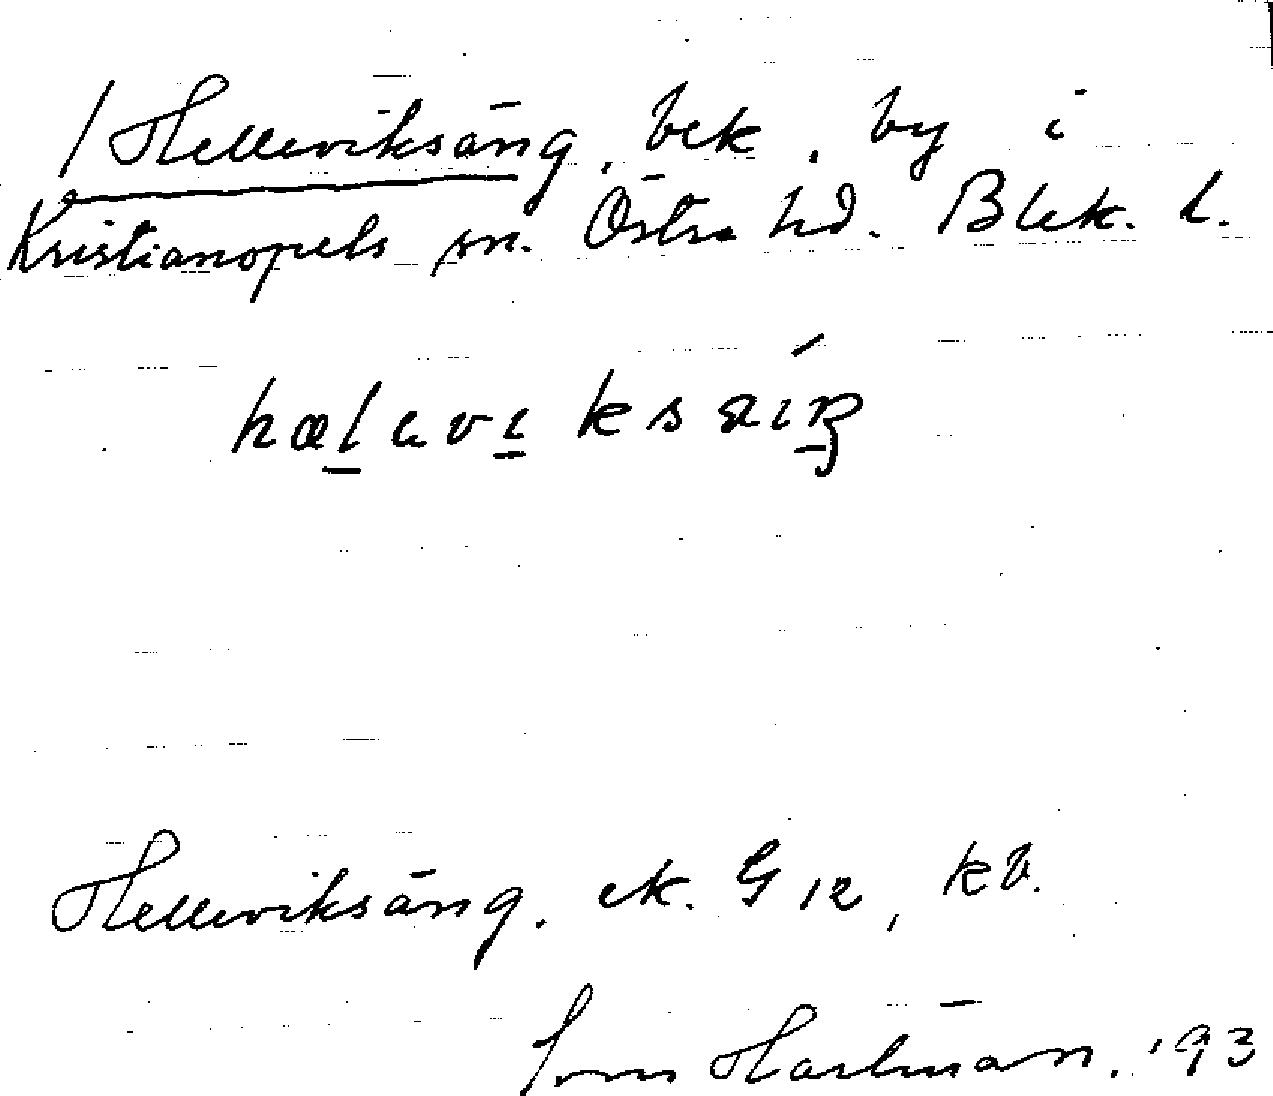 / Helleviksäng, bek. by i
Kristianopels sn. Östra hd. Blek. l.
Helleviksäng. ek. G 12, kb.
Hartman. '93